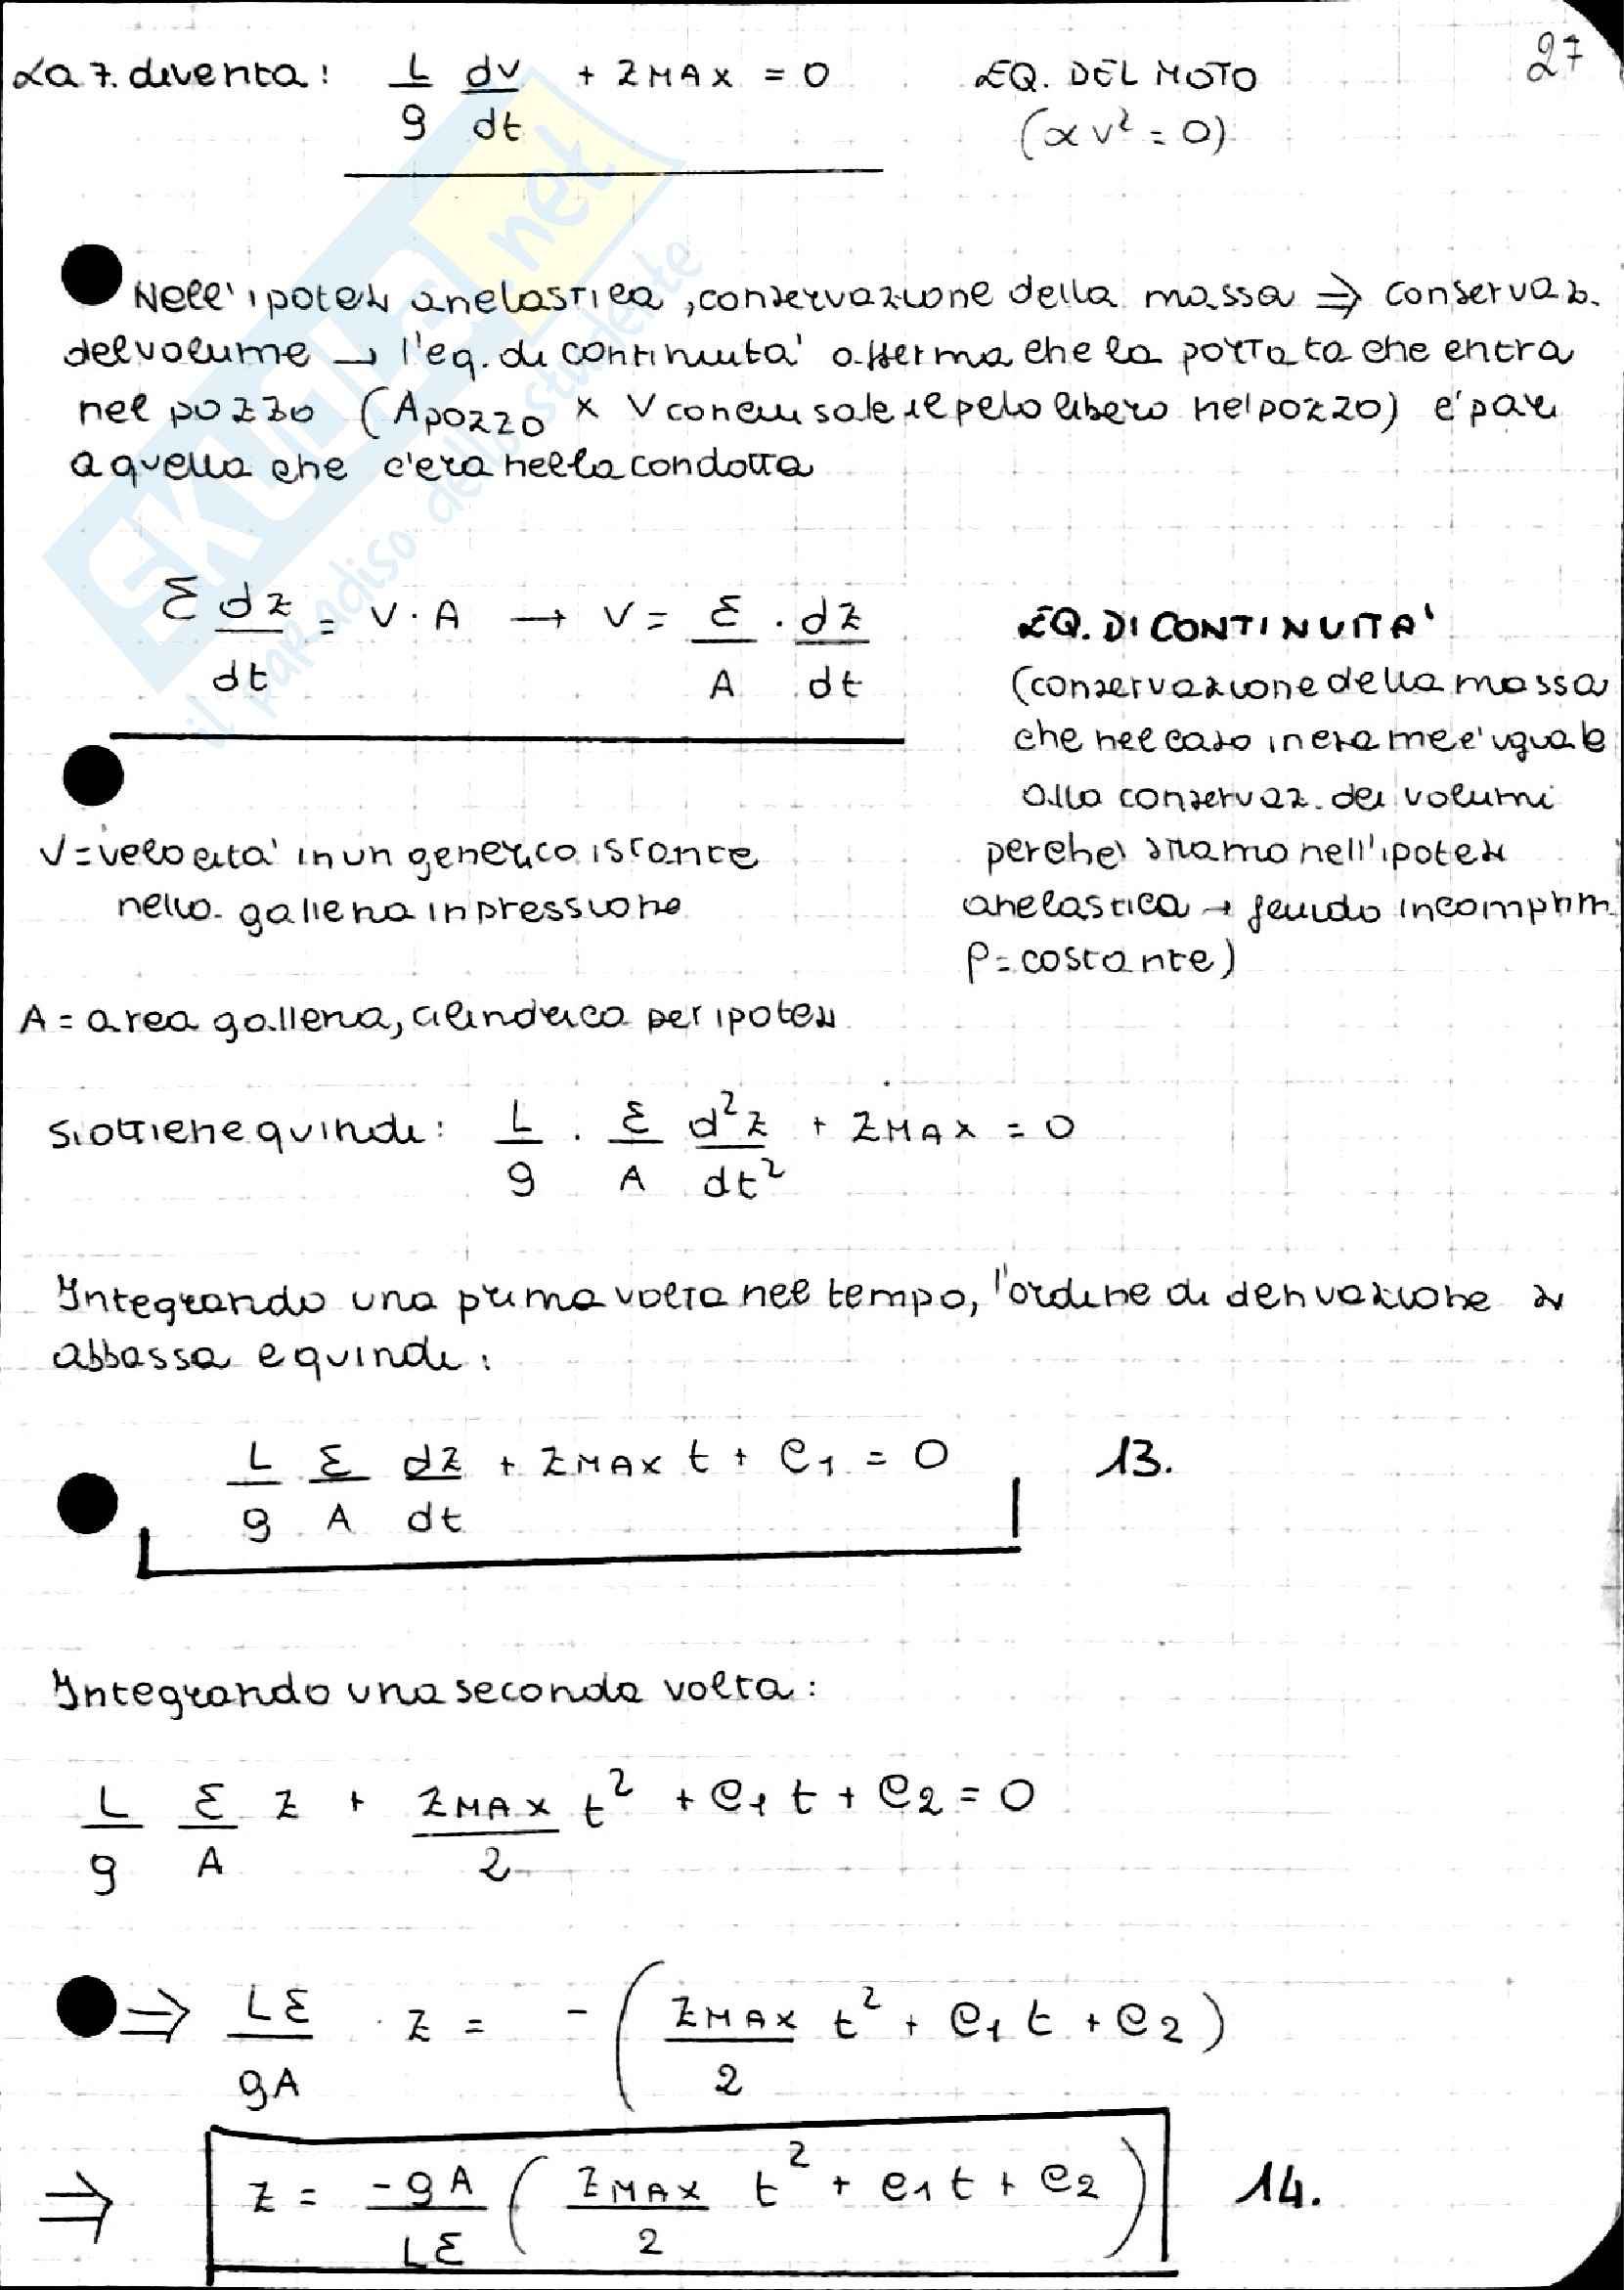 27
La 7. diventa: L/g dv/dt + ZMAX = 0 EQ. DEL MOTO
(αv² = 0)
Nell'ipotesi anelastica, conservazione della massa ⇒ conservaz.
del volume → l'eq. di continuita' afferma che la portata che entra
nel pozzo (Apozzo x V con cui sale il pelo libero nel pozzo) e' pari
a quella che c'era nella condotta
Σ dz/dt = V·A → V = Σ/A · dz/dt EQ. DI CONTINUITA'
(conservazione della massa
che nel caso in esame e' uguale
alla conservaz. dei volumi
V = velocita' in un generico istante
nella galleria in pressione
perche' siamo nell'ipotesi
anelastica → fluido incomprim
ρ = costante)
A = area galleria, cilindrica per ipotesi
Si ottiene quindi: L/g · Σ/A d²z/dt² + ZMAX = 0
Integrando una prima volta nel tempo, l'ordine di derivazione si
abbassa e quindi:
L/g Σ/A dz/dt + ZMAX t + C₁ = 0 13.
Integrando una seconda volta:
L/g Σ/A z + ZMAX/2 t² + C₁t + C₂ = 0
⇒ LΣ/gA · z = -(ZMAX/2 t² + C₁t + C₂)
⇒ z = -gA/LΣ (ZMAX/2 t² + C₁t + C₂) 14.
SKUOLA.net
il paradiso dello studente